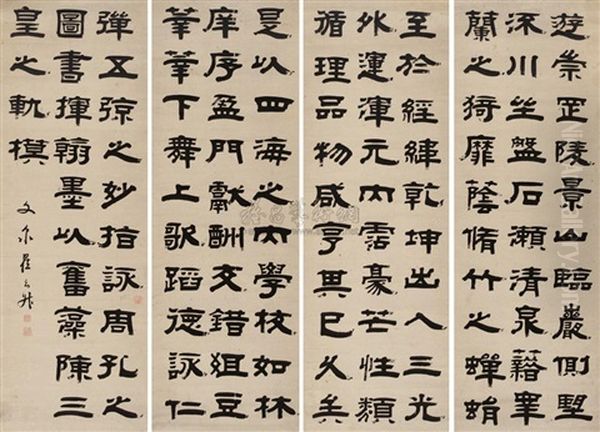 遊崇罡陵景山臨巖側墅
川坐盤石瀨清泉藉皋
蘭之猗靡蔭脩竹之蟬蜎
至於經緯乾坤出入三光
外運渾元內霑豪芒性類
循理品物咸亨其巳久矣
是以四海之內學校如林
庠序盈門獻酬交錯俎豆
莘莘下舞上歌蹈德詠仁
彈五弦之妙指詠周孔之
圖書揮翰墨以奮藻陳三
皇之軌模